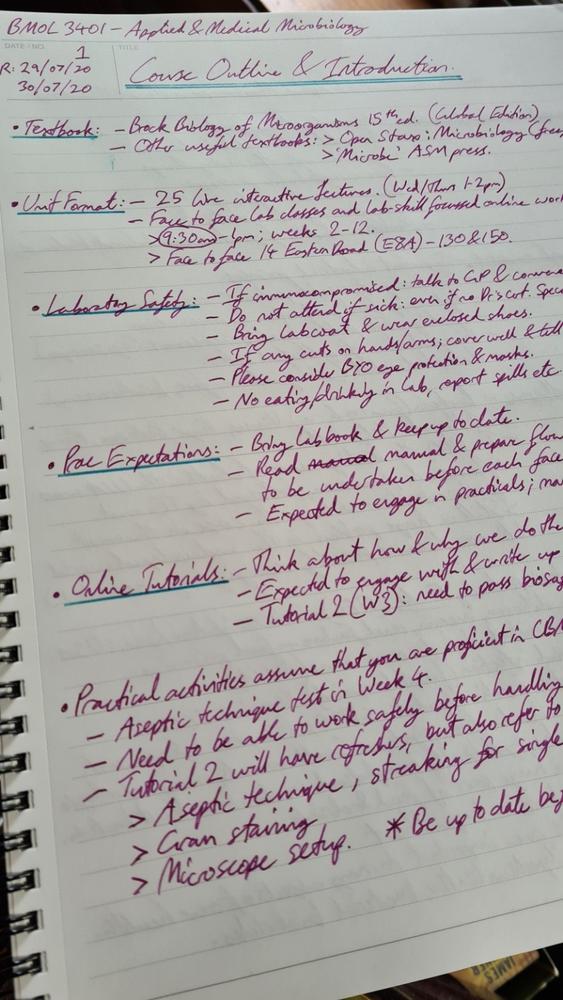 BMOL 3401 - Applied & Medical Microbiology
DATE / NO. 1 TITLE
R: 29/07/20
30/07/20
Course Outline & Introduction.
• Textbook: - Brock Biology of Microorganisms 15th ed. (Global Edition)
- Other useful textbooks: > Open Stax: Microbiology (free
> 'Microbe' ASM press.
• Unit Format: - 25 live interactive lectures. (Wed/Thurs 1-2pm)
- Face to face lab classes and lab-skill focussed online work
> 9:30am - 1pm; weeks 2-12.
> Face to face 14 Eastern Road (E8A) - 130 & 150.
• Laboratory Safety: - If immunocompromised: talk to GP &
- Do not attend if sick: even if no Dr's cert.
- Bring labcoat & wear enclosed shoes.
- If any cuts on hands/arms; cover well & tell
- Please consider BYO eye protection & masks.
- No eating/drinking in lab, report spills etc
• Prac Expectations: - Bring labbook & keep up to date.
- Read manual & prepare flow
to be undertaken before each face
- Expected to engage in practicals;
• Online Tutorials: - Think about how & why we do the
- Expected to engage with & write up
- Tutorial 2 (W3): need to pass
• Practical activities assume that you are proficient in
- Aseptic technique test in Week 4.
- Need to be able to work safely before handling
- Tutorial 2 will have refreshers, but also refer to
> Aseptic technique, streaking for single
> Gram staining
> Microscope setup. * Be up to date
JAMES